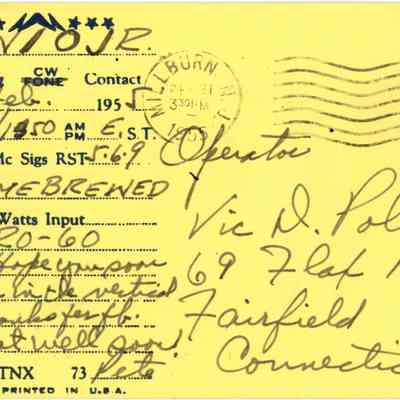 N1OJR.
CW
FONE Contact
Feb. 1955
1350 AM PM E.S.T.
Mc Sigs RST 5-6-9
MEBREWED
Watts Input
20-60
Hope you soon
in the vertical
anks fer fb.
at well soon
TNX 73 Pete
PRINTED IN U.S.A.
MILLBURN N.J.
330 PM
1955
Operator
Vic D. Pol
69 Flax
Fairfield
Connectic